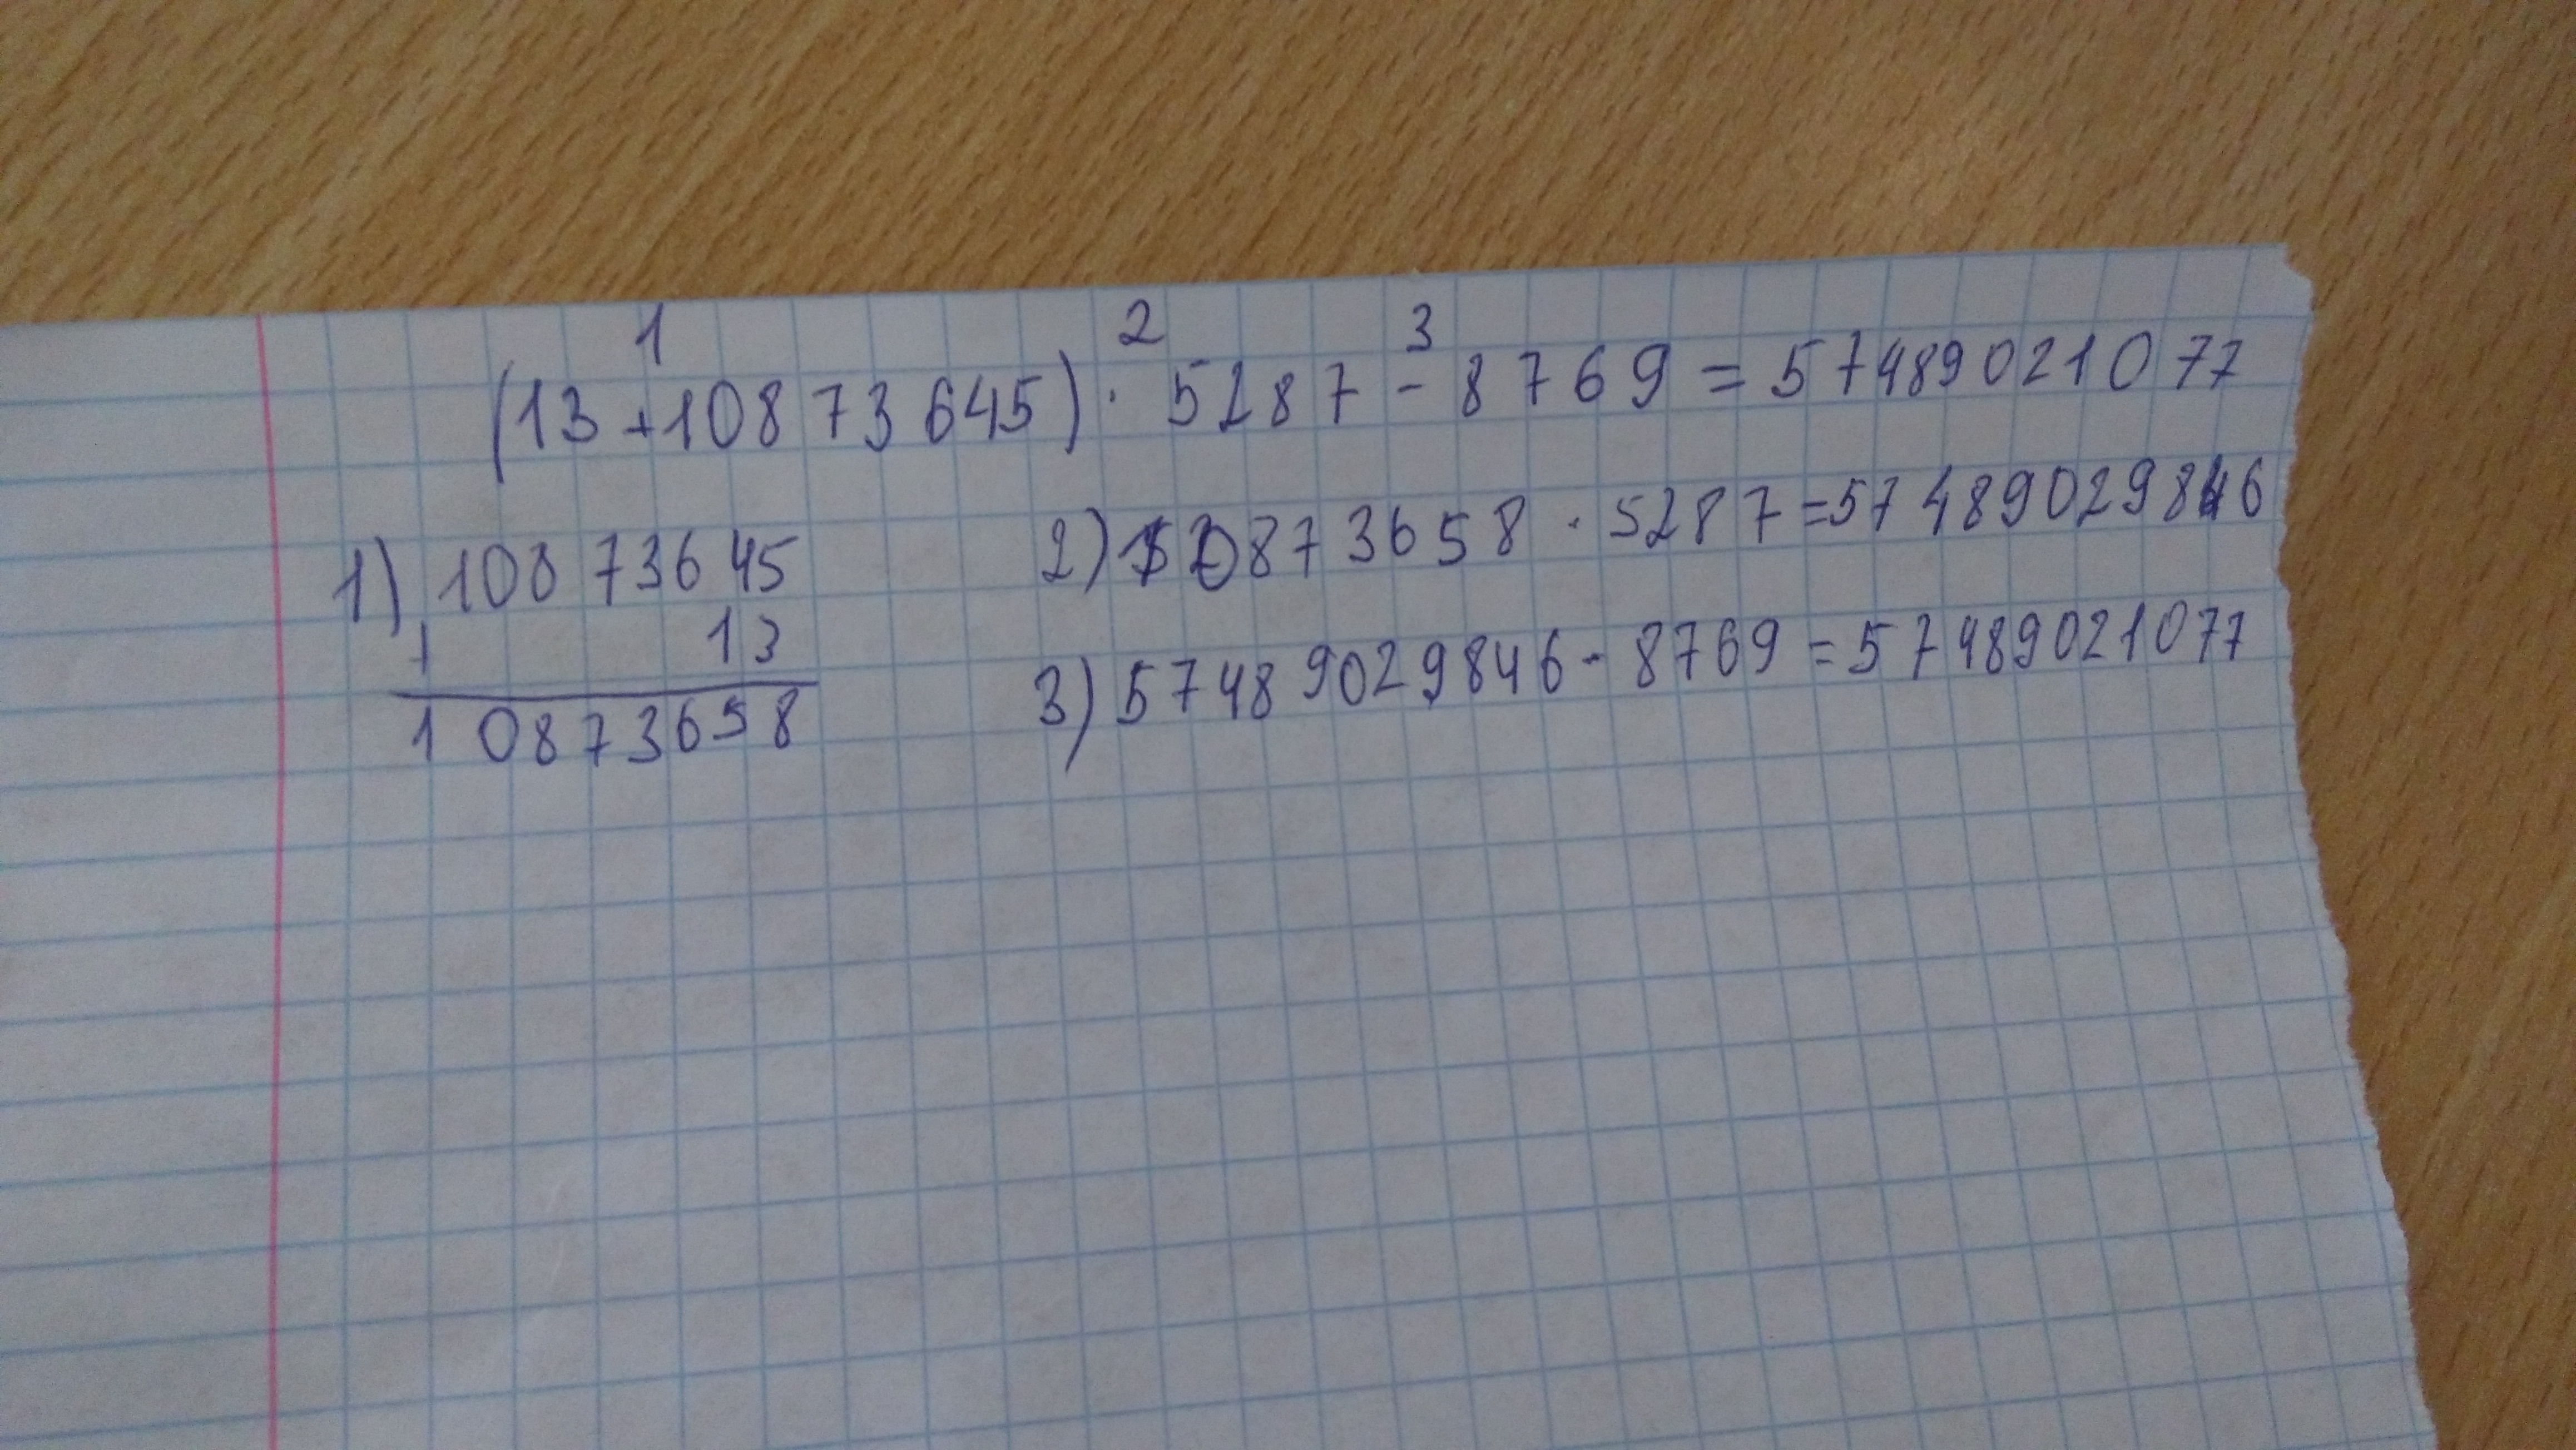 1 2 3
(13+10873645) · 5287 - 8769 = 57489021077
1) 10873645
+ 13
10873658
2) 10873658 · 5287 = 57489029846
3) 57489029846 - 8769 = 57489021077